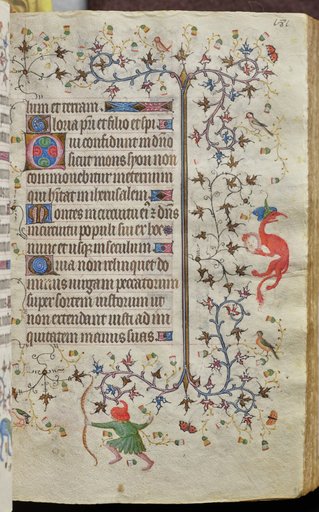 lum et terram.
Gloria p̄ri et filio et spi
Qui confidunt in dn̄o
sicut mons syon non
commouebitur in eternum
qui h̄itat in iherusalem.
Montes in circuitu eī ⁊ dn̄s
in circuitu populi sui ex hoc
nunc et usq̄ in seculum.
Quia non relinquet do
minus uirgam peccatorum
super sortem iustorum ut
non extendant iusti ad ini
quitatem manus suas.